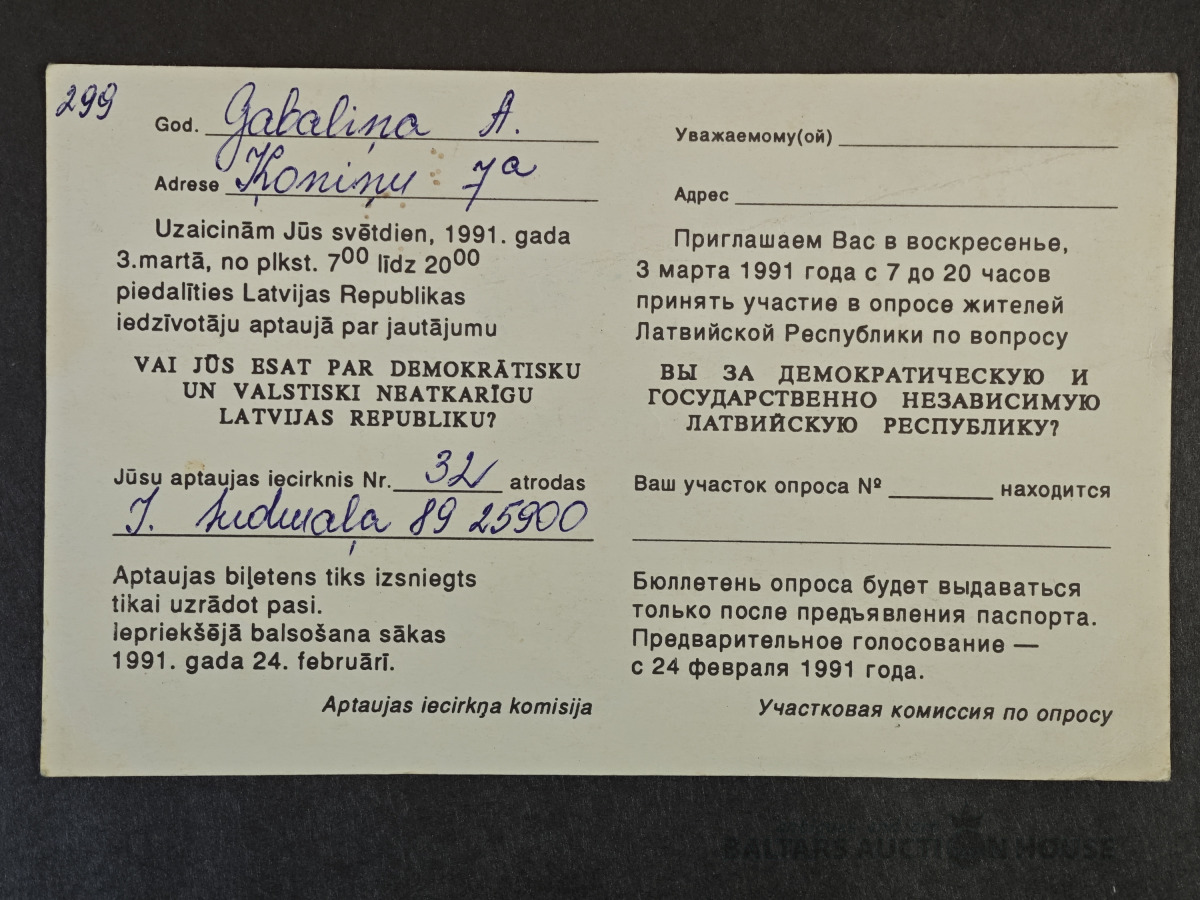 299
God. Gabaliņa A.
Adrese Ķoniņu 7a
Uzaicinām Jūs svētdien, 1991. gada
3.martā, no plkst. 7⁰⁰ līdz 20⁰⁰
piedalīties Latvijas Republikas
iedzīvotāju aptaujā par jautājumu
VAI JŪS ESAT PAR DEMOKRĀTISKU
UN VALSTISKI NEATKARĪGU
LATVIJAS REPUBLIKU?
Jūsu aptaujas iecirknis Nr. 32 atrodas
J. Sudmaļa 89 25900
Aptaujas biļetens tiks izsniegts
tikai uzrādot pasi.
Iepriekšējā balsošana sākas
1991. gada 24. februārī.
Aptaujas iecirkņa komisija
Уважаемому(ой)
Адрес
Приглашаем Вас в воскресенье,
3 марта 1991 года с 7 до 20 часов
принять участие в опросе жителей
Латвийской Республики по вопросу
ВЫ ЗА ДЕМОКРАТИЧЕСКУЮ И
ГОСУДАРСТВЕННО НЕЗАВИСИМУЮ
ЛАТВИЙСКУЮ РЕСПУБЛИКУ?
Ваш участок опроса № находится
Бюллетень опроса будет выдаваться
только после предъявления паспорта.
Предварительное голосование —
с 24 февраля 1991 года.
Участковая комиссия по опросу
BALTARS AUCTION HOUSE